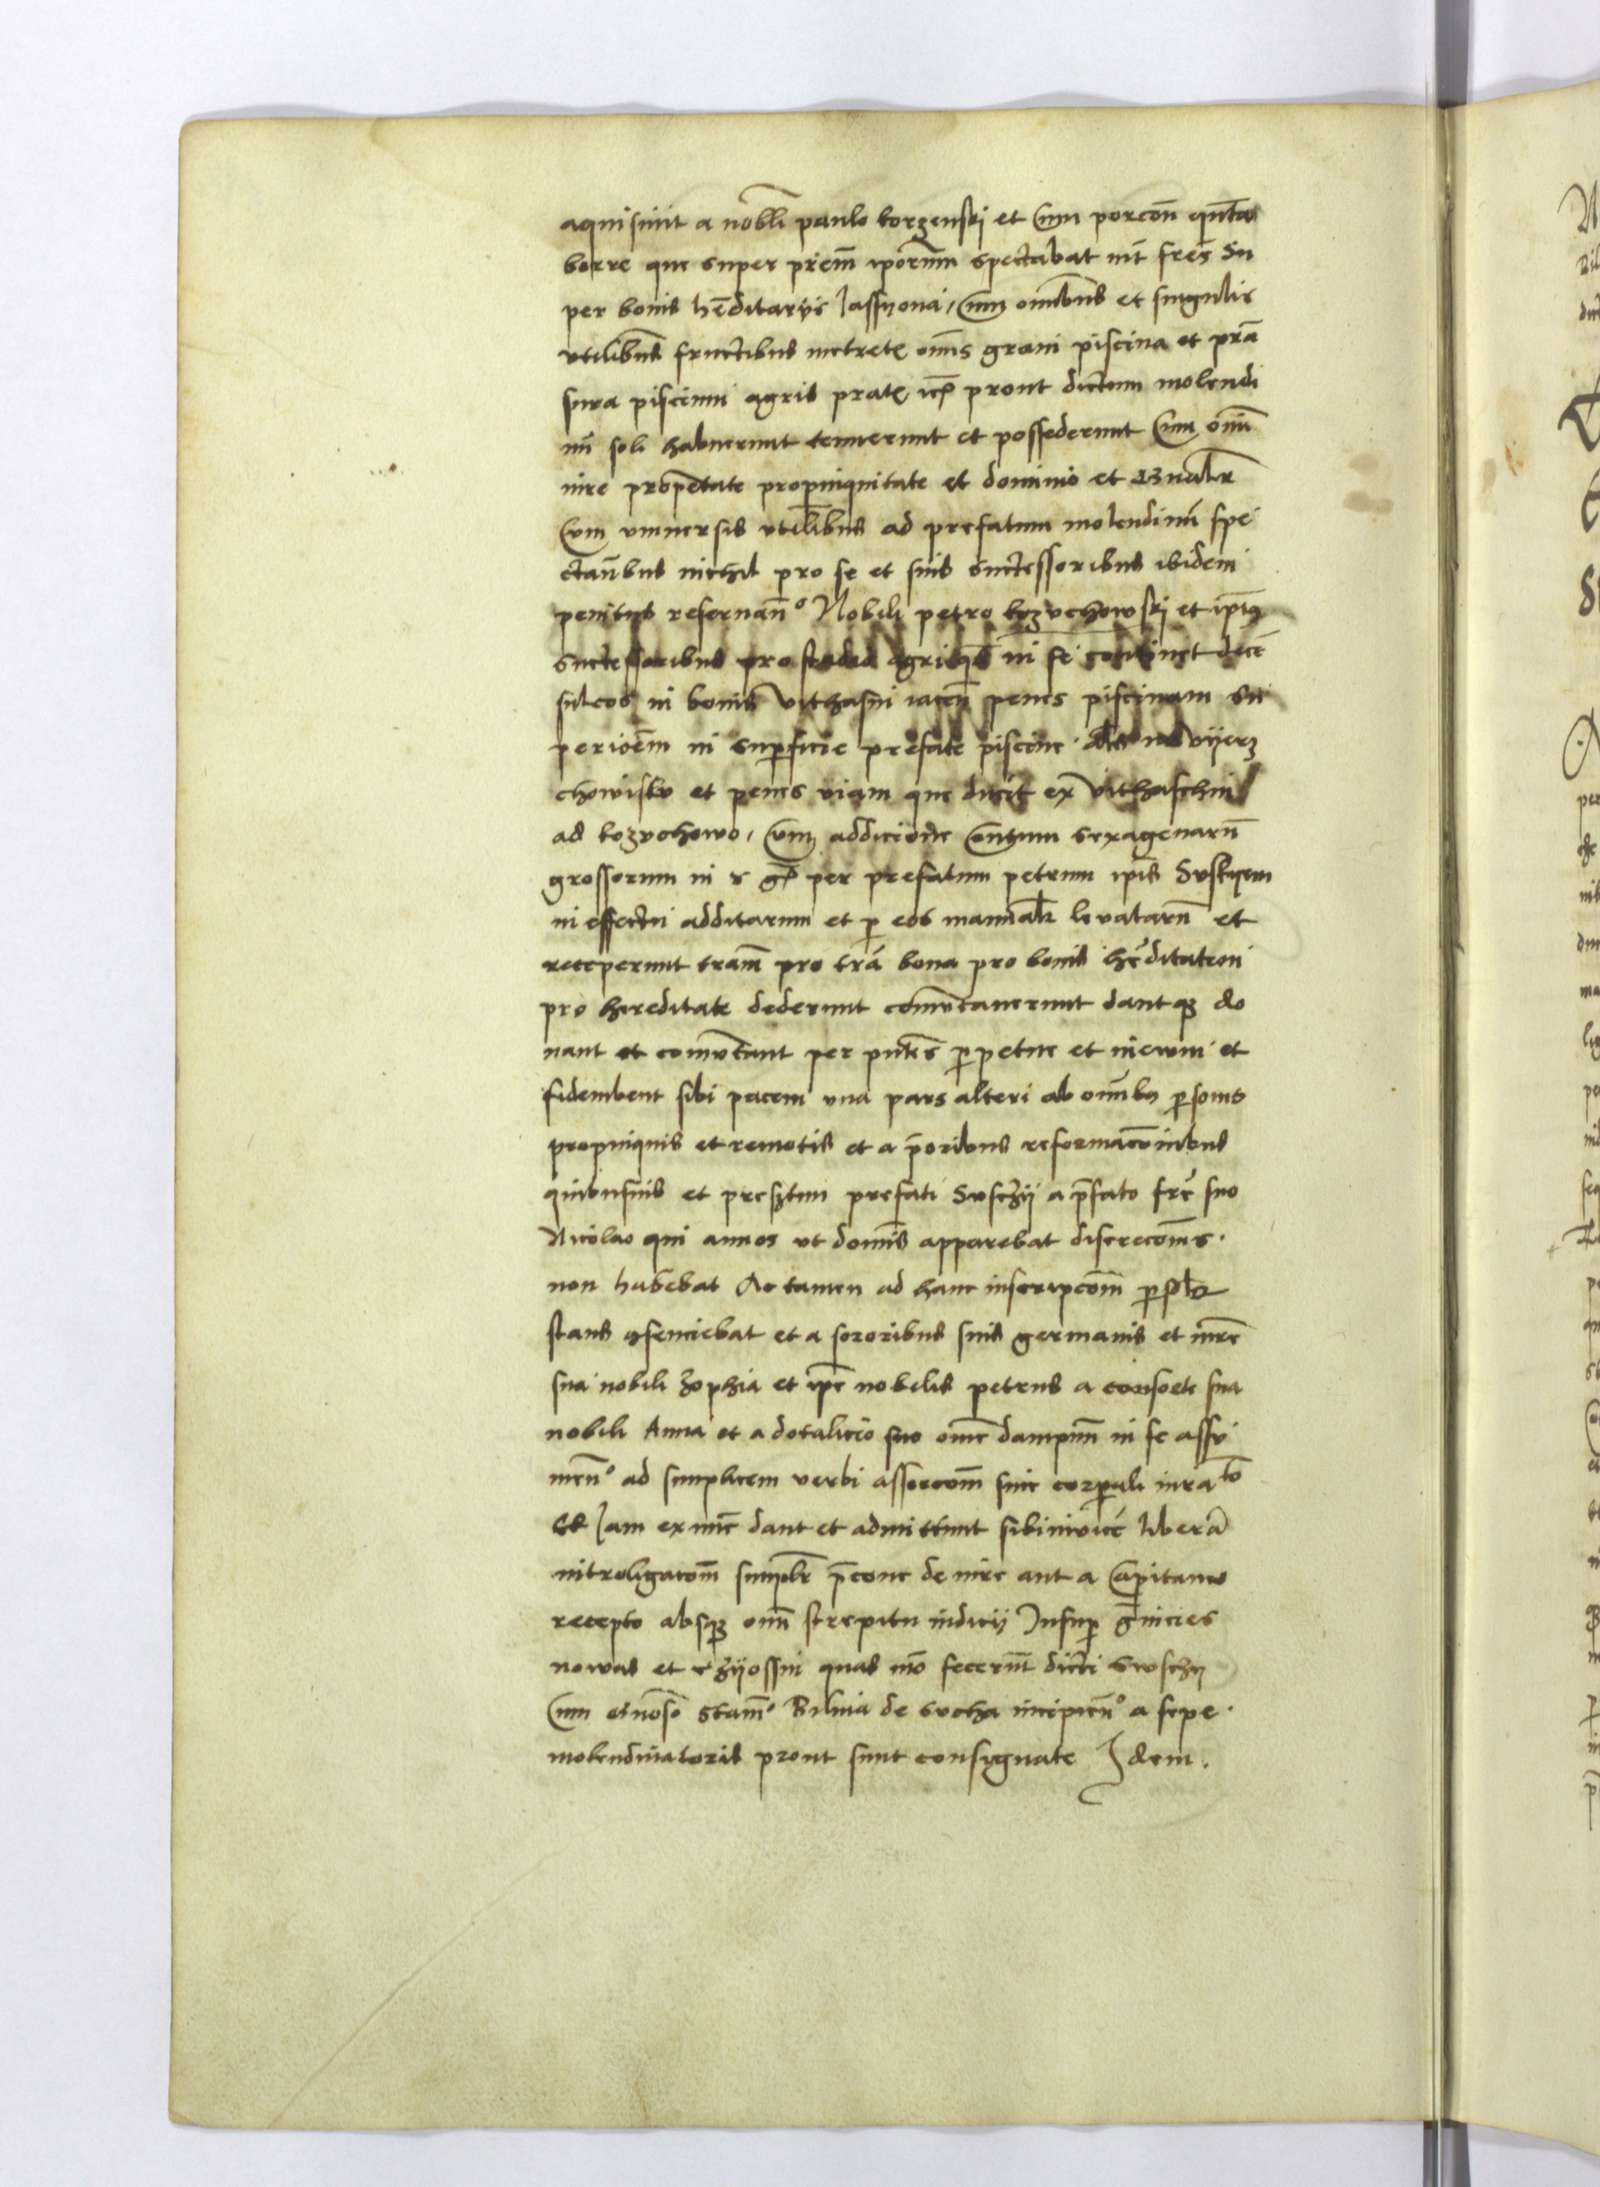 aquisiuit a nobli paulo borzenski et Cum porcon quarta
borre que super prem iporum spectabat int fres Su
per bonis heditarys Jassyona, Cum omibus et singulis
vtilibus fructibus metrete omis grani piscina et pra
sura piscium agris prate, prout dictum molendi
nu soli habuerunt tenuerunt et possederunt Cum omi
iure propetate propinquitate et dominio et
Cum vniuersis vtilibus ad prefatum molendinu spe
ctantbus nichil pro se et suis successoribus ibidem
penitus reseruan Nobili petro kozuchowski et
successoribus pro in se continet dece
sulcos in bonis vithasni iacen penes piscinam su
periorem in supficie prefate piscine vyerz
chowisku et penes viam que ducit ex vithaschin
ad kozvchowo, Cum addicione Centum sexagenaru
grossorum in per prefatum petrum ipis
in effectu additarum et p eos manualr levataru et
receperunt tram pro tra bona pro bonis heditatem
pro hereditate dederunt comutauerunt dantqz do
nant et comutant per pntes ppetue et in ewm et
fideiubent sibi pacem vna pars alteri ab omibus psonis
propinquis et remotis et a prioribus reformacoinbus
quibusuis et presztim prefati Suschij a pfato fre suo
Nicolao qui annos vt domis apparebat discrecois.
non habebat Ac tamen ad hanc inscripcom psolr
stans consenciebat et a sororibus suis germanis et mre
sua nobili Zophia et ipe nobilis petrus a consorte sua
nobili Anna et a dotalicio suo ome dampnum in se assu
men ad simplicem verbi assercom sine corporali iurato
Et Jam ex nunc dant et admittunt sibiinuice libera
intro­ligacom simplr pcone de iure aut a Capitaneo
recepto absqz omi strepitu iudicij Insup
nowas et quas modo fecerunt dicti Suschy
Cum de sucha incipien a sepe.
molendinatoris prout sunt consygnate Idem.